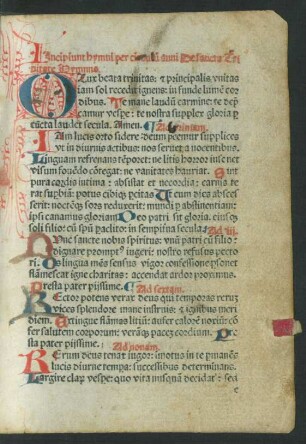 Incipiunt hymni per circulū anni De sancta Tri
nitate Hymnus
O Lux beata trinitas: & principalis vnitas
iam sol recedit igneus: infunde lumē cor
dibus. Te mane laudū carmine: te dep̄
camur vespe: te nostra supplex gloria p
cūcta laudet secula. Amen.
Iam lucis orto sidere deum precemur supplices
vt in diurnis actibus: nos seruet a nocentibus.
Linguam refrenans tēperet: ne litis horror insonet
visum fouēdo cōtegat: ne vanitates hauriat. Sint
pura cordis intima: absistat et vecordia: carnis te
rat supbiā: potus cibiq̄ pcitas Ut cum dies absces
serit: noctēq̄ sors reduxerit: mundi p abstinentiam:
ipsi canamus gloriam Deo patri sit gloria. eiusq̄
soli filio: cū spū paclito: in sempiterna secula Ad iii.
Nunc sancte nobis spiritus: vnū patri cū filio:
dignare promptꝰ ingeri: nostro refusus pecto
ri. Os lingua mēs sensus vigor confessionē psonet
flamescat igne charitas: accendat ardor proximos.
Presta pater piissime. Ad sextam.
Rector potens verax deus qui temperas rerum
vices splendore mane instruis: et ignibus meri
diem. Extingue flamas litiū: aufer calorē noxiū: cō
fer salutem corporum: verāq̄ pacem cordium. Pre
sta pater piissime. Ad nonam.
Rerum deus tenax vigor: imotus in te pmanēs
lucis diurne tempora: successibus determinans.
Largire clarꝫ vespe: quo vita nusquā decidat: sed